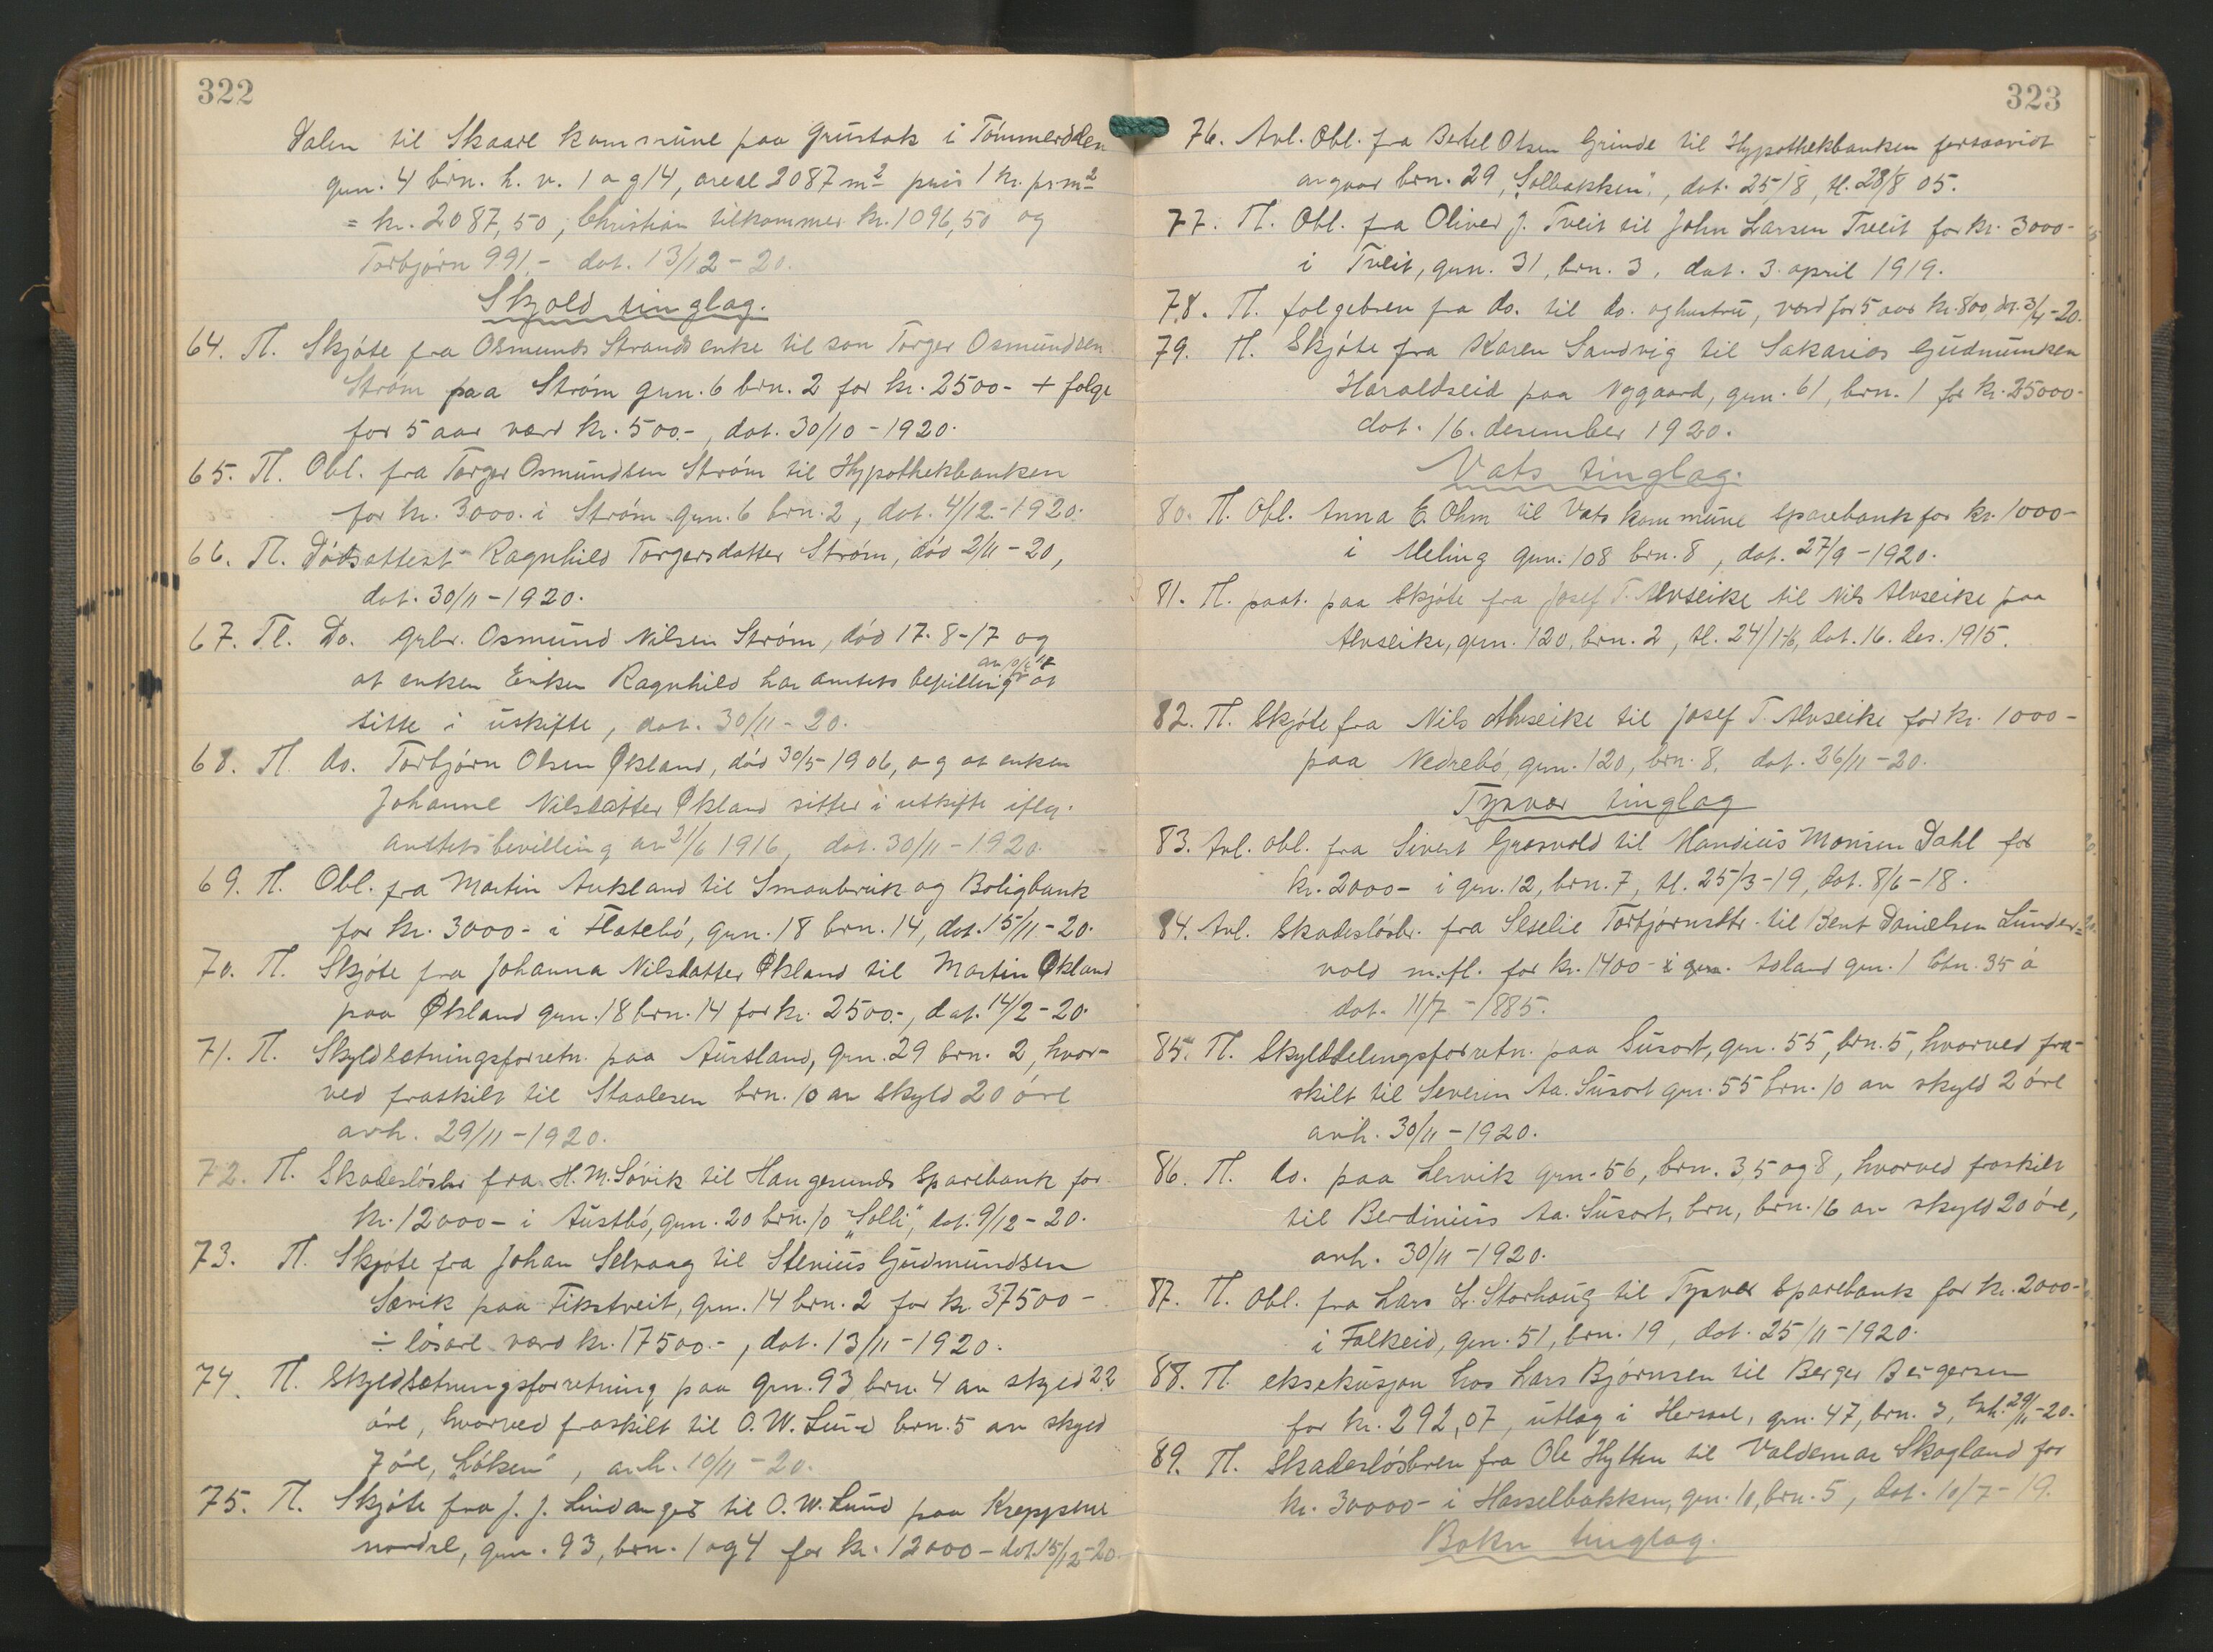 322
Dalen til Skaare kommune paa Grustak i Tömmerdalen
gnn. 4 brn. h. v. 1 og 14, areal 2087 m² pris 1 kr. pr m²
= kr. 2087,50, Christian tilkommer kr. 1096,50 og
Torbjörn 991.- dat. 13/12 - 20.
Skjold tinglag.
64. Tl. Skjöte fra Osmunds Strands enke til son Torger Osmundsen
Ström paa Ström gnn. 6 brn. 2 for kr. 2500- + folge
for 5 aar værd kr. 500.-, dat. 30/10 - 1920.
65. Tl. Obl. fra Torger Osmundsen Ström til Hypothekbanken
for kr. 3000. i Ström gnn. 6 brn. 2, dat. 4/12.- 1920.
66. Tl. Dödsattest Ragnhild Torgersdatter Ström, död 2/11 - 20,
dat. 30/11 - 1920.
67. Tl. Do. grbr. Osmund Nilsen Ström, död 17-8-17 og
at enken Enken Ragnhild har amtets bevilling at
sitte i uskifte, dat. 30/11 - 20.
68. Tl. do. Torbjörn Olsen Økland, död 30/5 - 1906, og at enken
Johanne Nilsdatter Økland sitter i utskifte iflg.
amtets bevilling av 21/6 1916, dat. 30/11 - 1920.
69. Tl. Obl. fra Martin Aukland til Smaabruk og Boligbank
for kr. 3000- i Flatebö, gnn. 18 brn. 14, dat. 15/11 - 20.
70. Tl. Skjöte fra Johanna Nilsdatter Økland til Martin Økland
paa Økland gnn. 18 brn. 14 for kr. 2500.-, dat. 14/2 - 20.
71. Tl. Skyldsætningsforretn. paa Aursland, gnn. 29 brn. 2, hvor-
ved fraskilt til Staalesen brn. 10 av skyld 20 öre
avh. 29/11 - 1920.
72. Tl. Skadeslösbr fra H. M. Sövik til Haugesunds Sparebank for
kr. 12000- i Austbö, gnn. 20 brn. 10 „Solli", dat. 9/12 - 20.
73. Tl. Skjöte fra Johan Selvaag til Stenius Gudmundsen
Sævik paa Tikstveit, gnn. 14 brn. 2 for kr. 37500-
÷ lösöre værd kr. 17500.-, dat. 13/11 - 1920.
74. Tl. Skyldsætningsforretning paa gnn. 93 brn. 4 av skyld 22
öre, hvorved fraskilt til O. W. Lund brn. 5 av skyld
7 öre, „Löken", avh. 10/11 - 20.
75. Tl. Skjöte fra J. J. Lindanger til O. W. Lund paa Kreppene
nordre, gnn. 93, brn. 1 og 4 for kr. 12000- dat. 15/12 - 20.
323
76. Avl. Obl. fra Bertel Olsen Grinde til Hypothekbanken forsaavidt
angaar brn. 29, „Solbakken", dat. 25/8, tl. 28/8 05.
77. Tl. Obl. fra Oliver J. Tveit til John Larsen Tveit for kr. 3000-
i Tveit, gnn. 31, brn. 3, dat. 3. april 1919.
78. Tl. folgebrev fra do. til do. og hustru, værd for 5 aar kr. 800, dat. 3/4 - 20.
79. Tl. Skjöte fra Karen Sandvig til Sakarias Gudmundsen
Haraldseid paa Nygaard, gnn. 61, brn. 1 for kr. 25000-
dat. 16. desember 1920.
Vats tinglag.
80. Tl. Obl. Anna E. Ohm til Vats kommune sparebank for kr. 1000-
i Meling gnn. 108 brn. 8, dat. 27/9 - 1920.
81. Tl. paat. paa Skjöte fra Josef T. Alvseike til Nils Alvseike paa
Alvseike, gnn. 120, brn. 2, tl. 24/1-16, dat. 16. des. 1915.
82. Tl. Skjöte fra Nils Alvseike til Josef T. Alvseike for kr. 1000-
paa Nedrebö, gnn. 120, brn. 8, dat. 26/11 - 20.
Tysvær tinglag
83. Avl. obl. fra Sivert Grasvold til Mandius Monsen Dahl for
kr. 2000- i gnn. 12, brn. 7, tl. 25/3-19, dat. 8/6-18.
84. Avl. Skadeslösbr. fra Seselie Torbjörnsdtr. til Bent Danielsen Lunder=
vold m.fl. for kr. 1400- i Asland gnn. 1 brn. 35 a
dat. 11/7 - 1885.
85. Tl. Skylddelingsforretn. paa Susort, gnn. 55, brn. 5, hvorved fra-
skilt til Severin Aa. Susort gnn. 55 brn. 10 av skyld 2 öre
avh. 30/11 - 1920.
86. Tl. do. paa Lervik gnn. 56, brn. 3, 5 og 8, hvorved fraskilt
til Berdinius Aa. Susort, brn, brn. 16 av skyld 20 öre,
avh. 30/11 - 1920.
87. Tl. Obl. fra Lars L. Storhaug til Tysvær Sparebank for kr. 2000-
i Falkeid, gnn. 51, brn. 19, dat. 25/11 - 1920.
88. Tl. eksekusjon hos Lars Björnsen til Berger Bergersen
for kr. 292,07, utlæg i gnn. 47, brn. 3, 29/11 - 20.
89. Tl. Skadeslösbrev fra Ole Hytten til Valdemar Skogland for
kr. 30000- i Hasselbakken, gnn. 10, brn. 5, dat. 10/7 - 19.
Bokn tinglag.